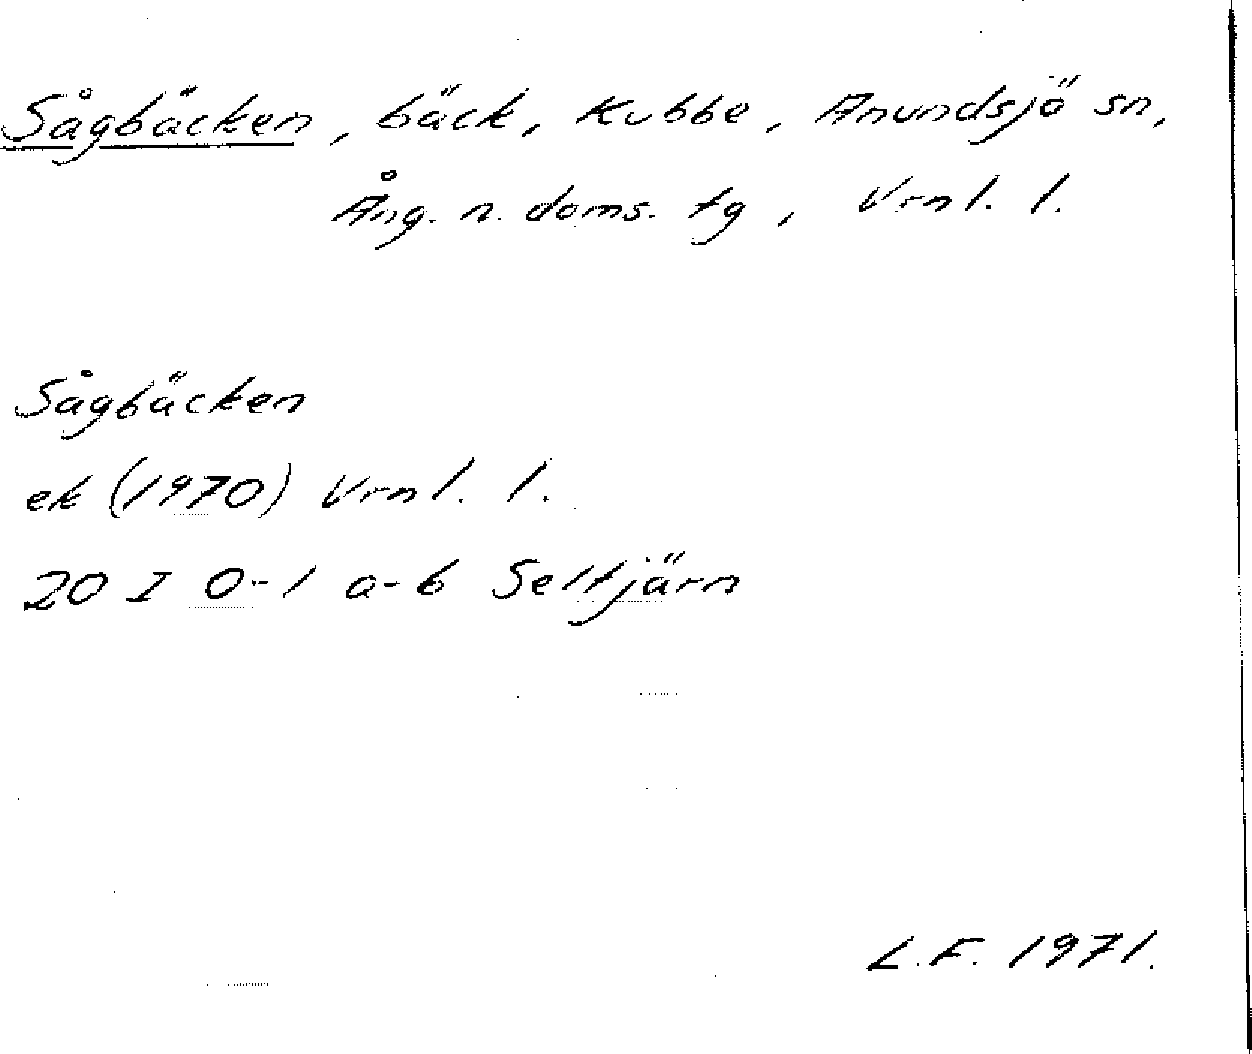 Sågbäcken, bäck, Kubbe, Anundsjö sn,
Ång. n. doms. tg, Vrnl. l.
Sågbäcken
ek (1970) Vrnl. l.
20 I 0-1 a-b Seltjärn
L.F. 1971.